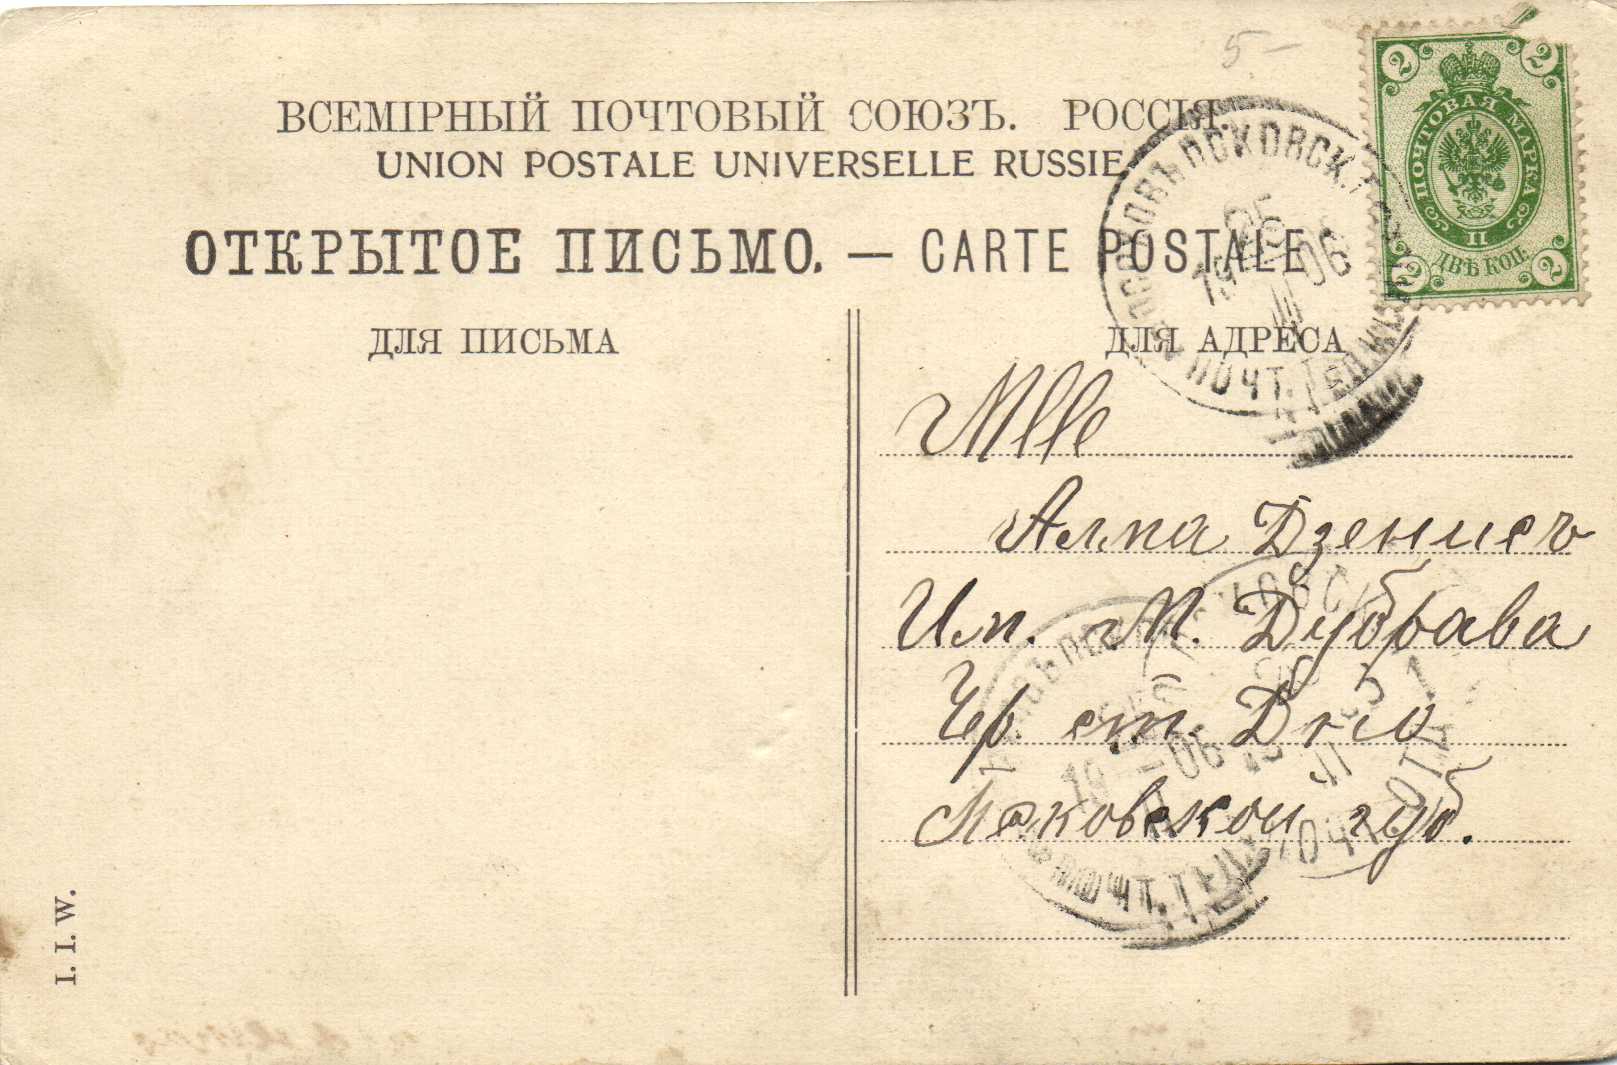 5.–
ВСЕМІРНЫЙ ПОЧТОВЫЙ СОЮЗЪ. РОССІЯ.
UNION POSTALE UNIVERSELLE RUSSIE
ОТКРЫТОЕ ПИСЬМО. — CARTE POSTALE
ПОЧТОВАЯ МАРКА
2 2
II
ДВѢ КОП.
2 2
ДЛЯ ПИСЬМА
ДЛЯ АДРЕСА
ПСКОВСК.
25
19 06
III
ПОЧТ.
Mlle
Алма Дзенисъ
Им. М. Дубрава
Чр. ст. Дно
Псковской губ.
19 06
ПОЧТ.
I. I. W.